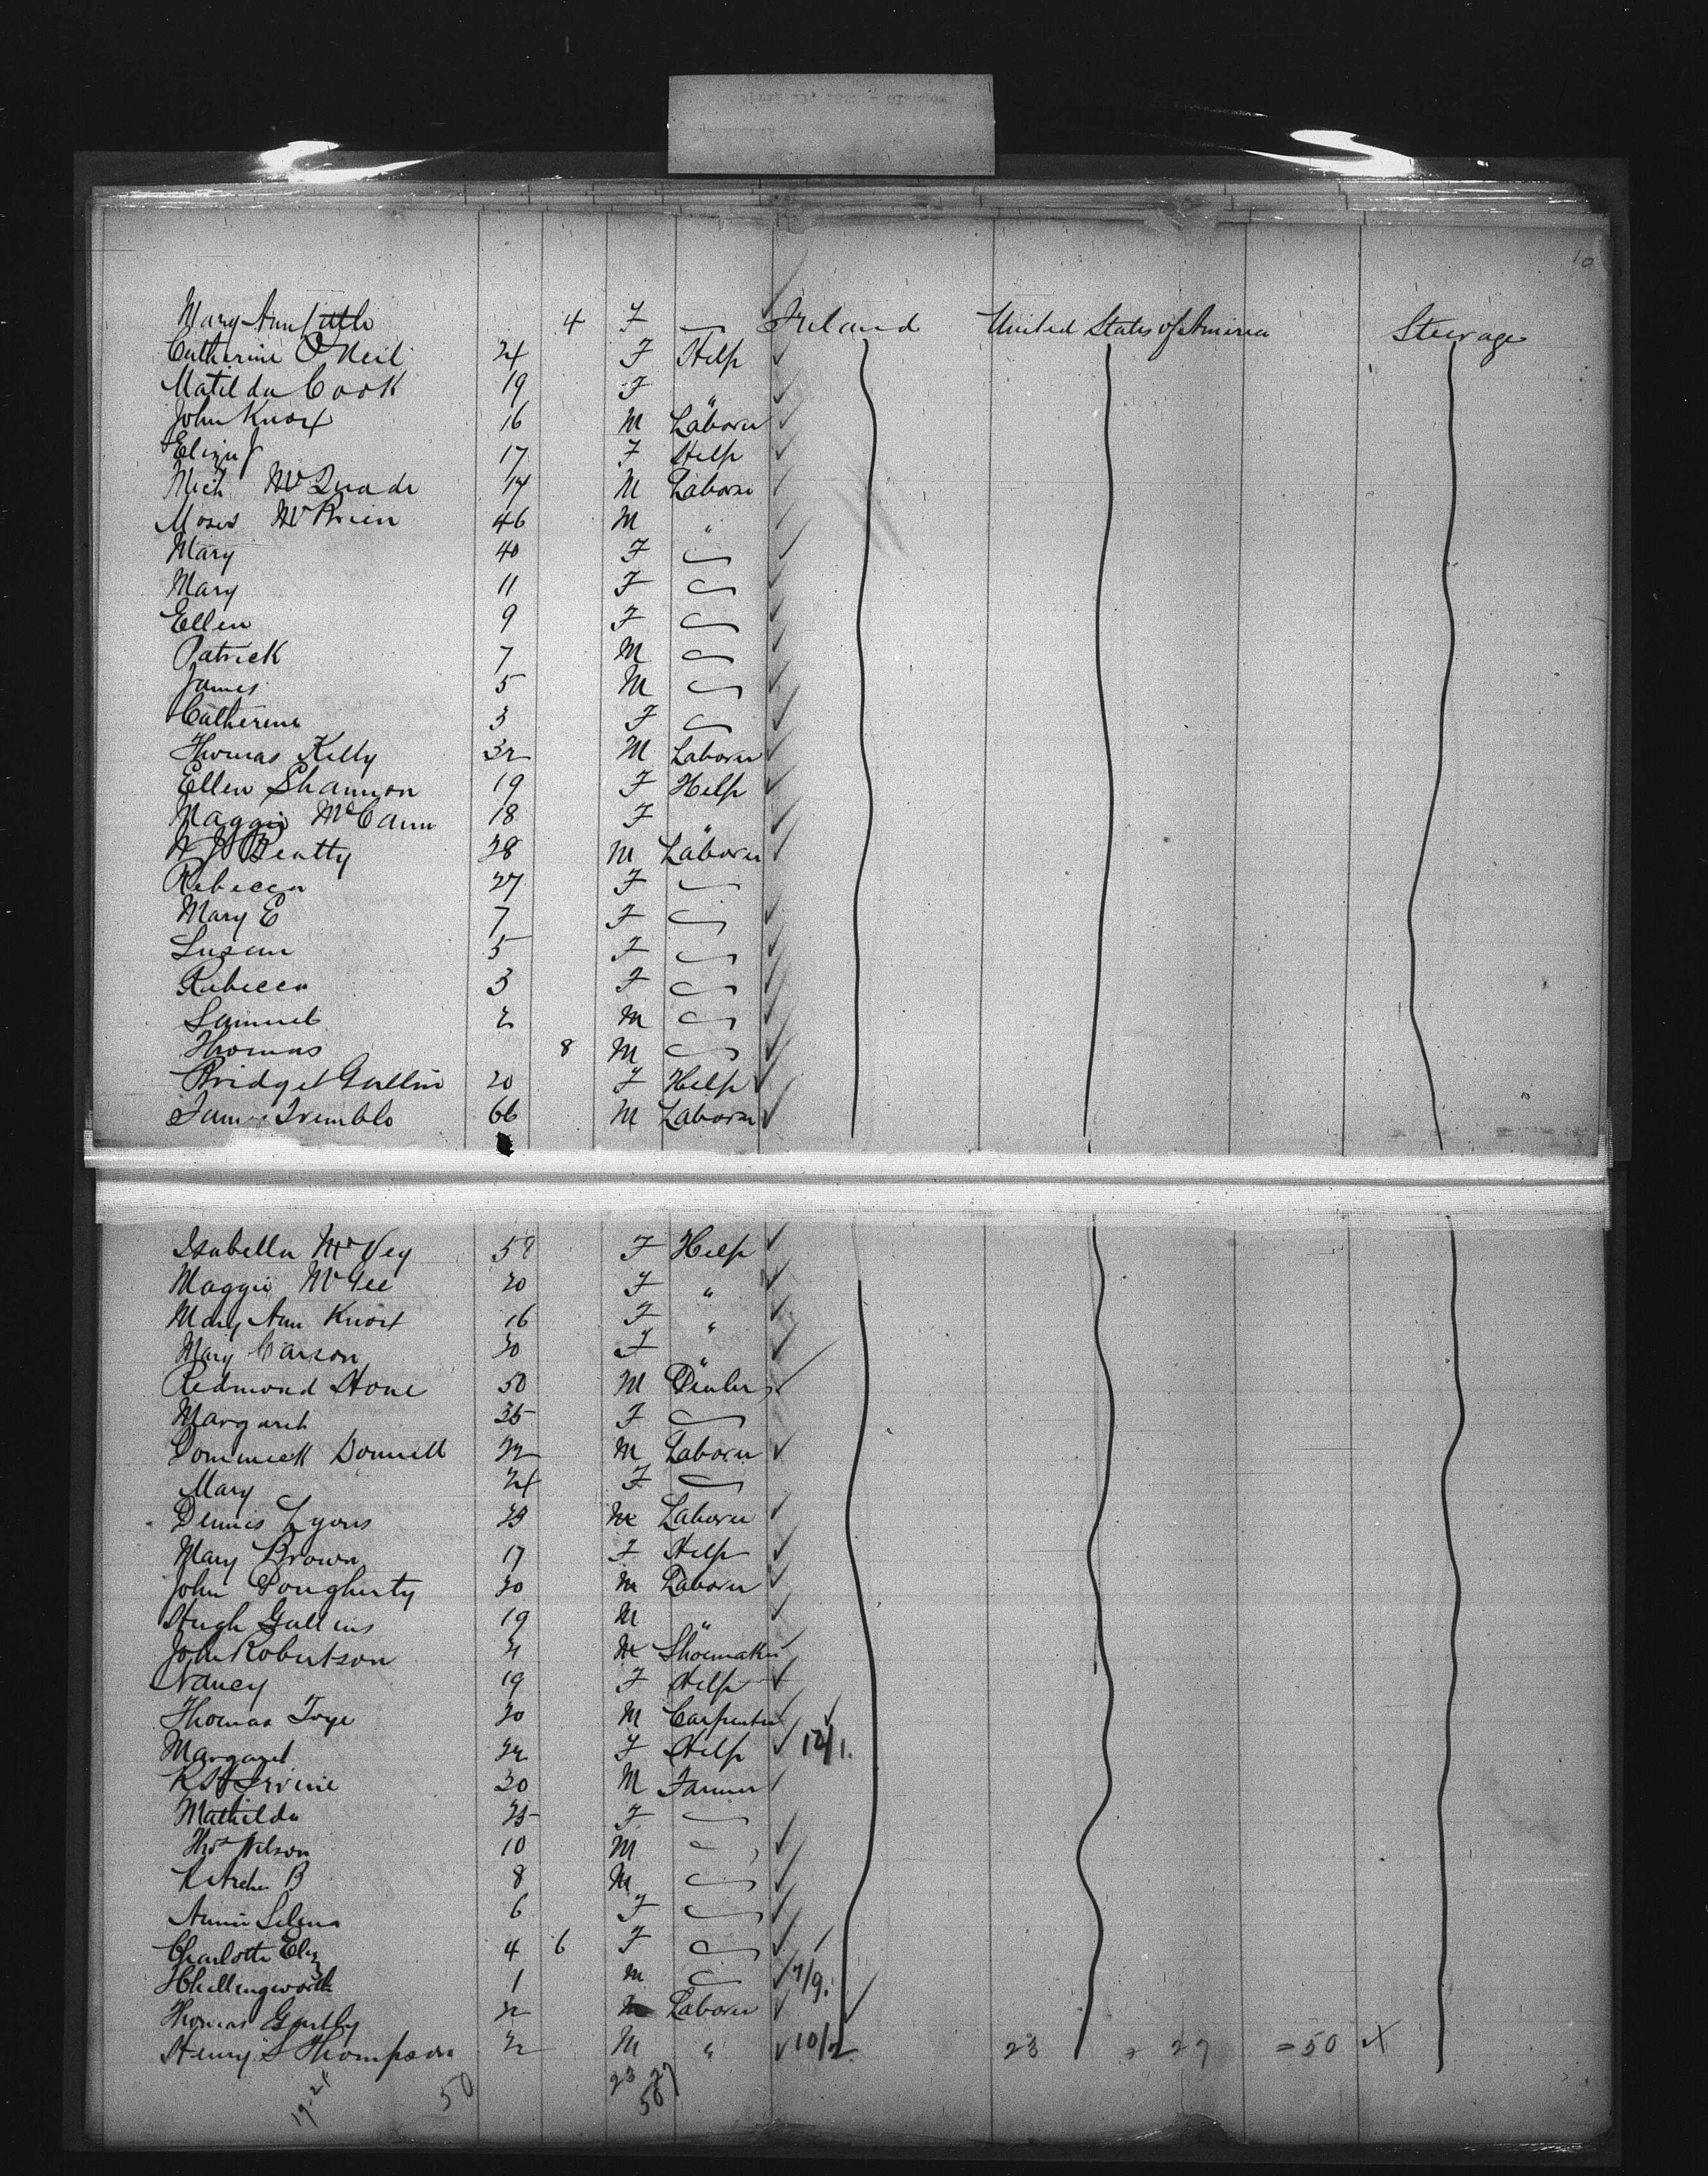 10
Mary Ann Little 4 F — Ireland United States of America Steerage
Catherine O'Neil 24 F Help
Matilda Cook 19 F "
John Knox 16 M Laborer
Eliza J 17 F Help
Mich McQuade 14 M Laborer
Moses McBrien 46 M "
Mary 40 F
Mary 11 F
Ellen 9 F
Patrick 7 M
James 5 M
Catherine 3 F
Thomas Kelly 32 M Laborer
Ellen Shannon 19 F Help
Maggie McCann 18 F "
Beatty 28 M Laborer
Rebecca 27 F
Mary E 7 F
Susan 5 F
Rebecca 3 F
Samuel 2 M
Thomas 8 M
Bridget Gallin 20 F Help
Tremble 66 M Laborer
Isabella McVey 52 F Help
Maggie McGee 20 F "
Mary Ann Knox 16 F "
Mary Carson 30 F "
Redmond Stone 50 M Dealer
Margaret 35 F
Dominick Donnell 22 M Laborer
Mary 24 F
Dennis Lyons 23 M Laborer
Mary Brown 17 F Help
John Dougherty 20 M Laborer
Hugh Gallins 19 M "
John Robertson 21 M Shoemaker
Nancy 19 F Help
Thomas Toye 30 M Carpenter
Margaret 22 F Help 12/1.
Irvine 30 M Farmer
Mathilda 25 F
Thos Wilson 10 M
B 8 M
Annie Selina 6 F
Charlotte Eliz 4 6 F
Chillingworth 1 M 7/9.
Thomas 22 M Laborer
Henry S Thompson 22 M " 10/2. 23 + 27 = 50 X
50 23 27
50